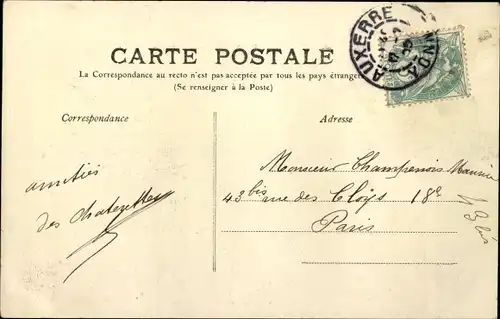 CARTE POSTALE
La Correspondance au recto n'est pas acceptée par tous les pays étrangers
(Se renseigner à la Poste)
Correspondance
Adresse
AUXERRE
YONNE
amitiés
des
Monsieur Champenois Maurice
43bis rue des Cloÿs 18e
Paris
43bis